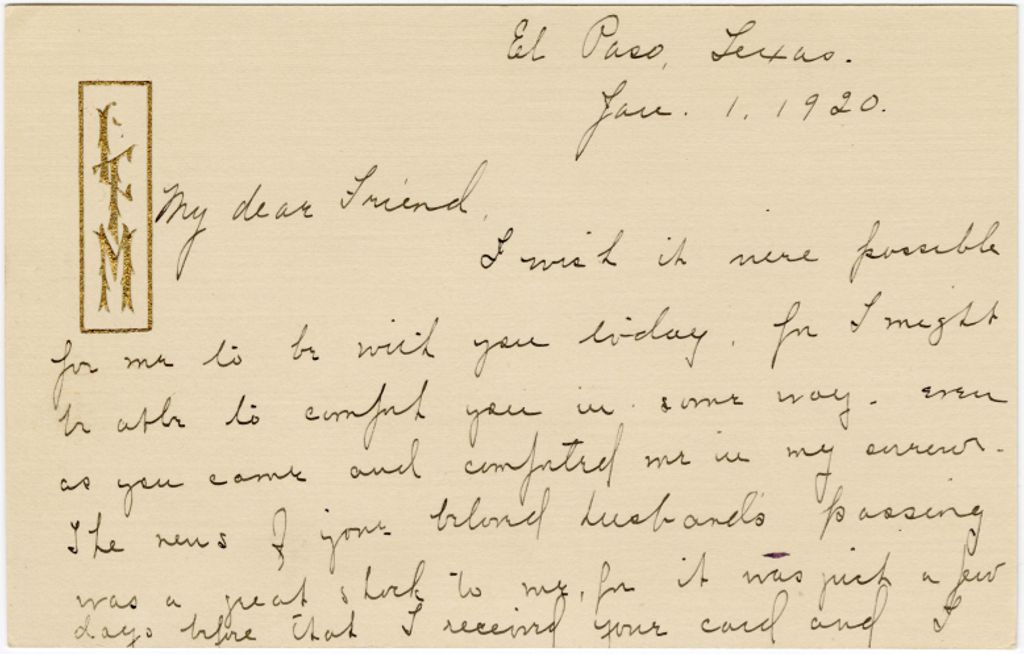 El Paso, Texas.
Jan. 1. 1920.
My dear Friend,
I wish it were possible
for me to be with you to-day, for I might
be able to comfort you in some way - even
as you came and comforted me in my sorrow.
The news of your beloved husband's passing
was a great shock to me, for it was just a few
days before that I received your card and I